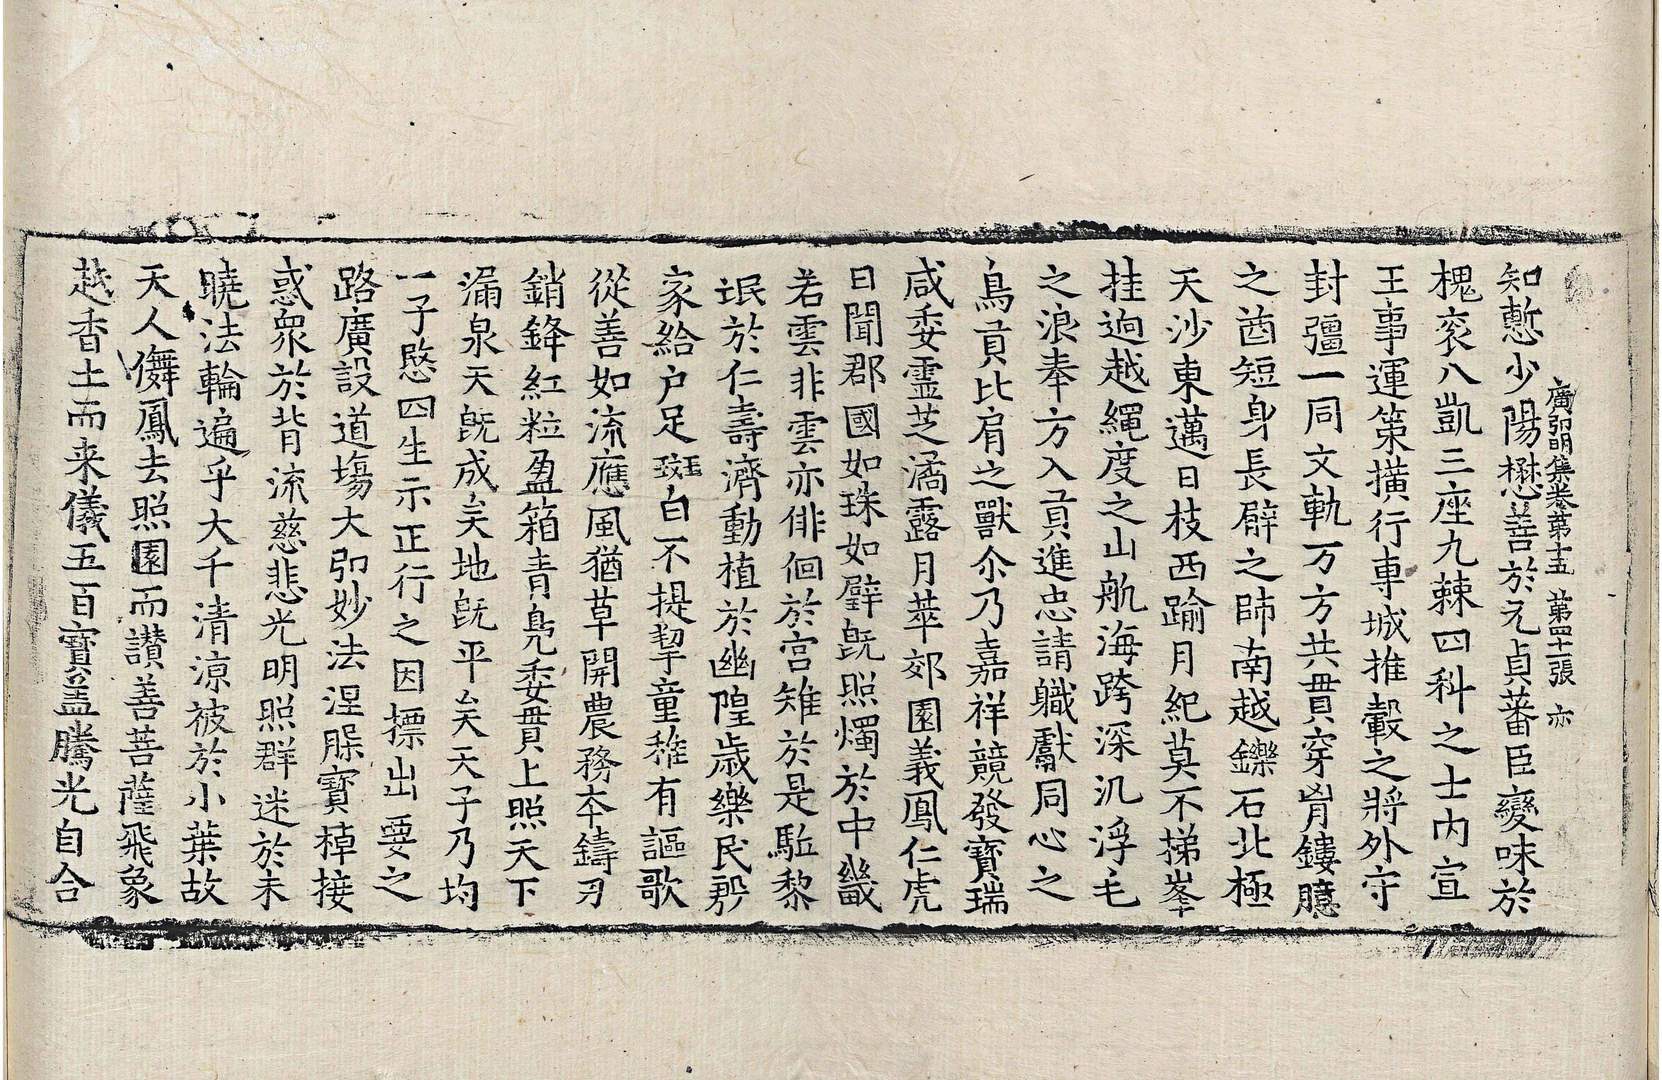 廣弘明集卷第十五　第四十一張　亦
知慙少陽懋善於元貞蕃臣變味於
槐衮八凱三座九棘四科之士内宣
王事運策撗行專城推轂之將外守
封彊一同文軌万方共貫穿胷鏤臆
之酋短身長臂之師南越鑠石北極
天沙東邁日枝西踰月紀莫不梯峯
挂逈越繩度之山航海跨深汎浮毛
之浪奉方入貢進忠請職獻同心之
鳥貢比肩之獸尒乃嘉祥競發寶瑞
咸委靈芝潏露月萃郊園義鳳仁虎
日聞郡國如珠如璧旣照燭於中畿
若雲非雲亦俳佪於宫雉於是駈黎
氓於仁壽濟動植於幽隍歳樂民殷
家給户足斑白不提挈童稚有謳歌
從善如流應風猶草開農務夲鑄刃
銷鋒紅粒盈箱青鳧委貫上照天下
漏泉天旣成矣地旣平矣天子乃均
一子愍四生示正行之因摽出要之
路廣設道塲大弘妙法涅腺寶棹接
惑衆於背流慈悲光明照群迷於未
曉法輪遍乎大千清凉被於小葉故
天人儛鳳去照園而讃善菩薩飛象
越香土而来儀五百寶盖騰光自合